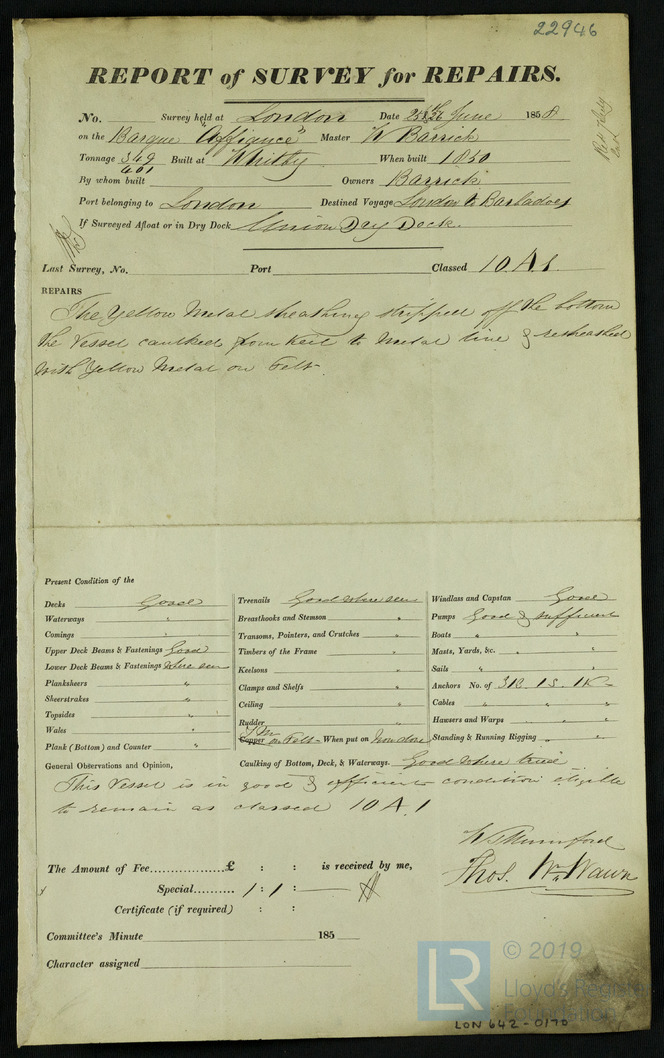 22946
REPORT of SURVEY for REPAIRS.
No. Survey held at London Date 25 & 26 June 1858
on the Barque "Affiance" Master W Barrick
Tonnage 349 Built at Whitby When built 1850
401
By whom built Owners Barrick
Port belonging to London Destined Voyage London to Barbadoes
If Surveyed Afloat or in Dry Dock Union Dry Dock.
Last Survey, No. Port Classed 10 A1
REPAIRS
The Yellow Metal sheathing stripped off the bottom
the Vessel caulked from Keel to Metal line & resheathed
with Yellow Metal on Felt.
Present Condition of the
Decks Good
Waterways "
Comings "
Upper Deck Beams & Fastenings Good
Lower Deck Beams & Fastenings where seen
Planksheers "
Sheerstrakes "
Topsides "
Wales "
Plank (Bottom) and Counter "
Treenails Good where seen
Breasthooks and Stemson "
Transoms, Pointers, and Crutches "
Timbers of the Frame "
Keelsons "
Clamps and Shelfs "
Ceiling "
Rudder "
Y M
Copper on Felt When put on Now done
Windlass and Capstan Good
Pumps Good & sufficient
Boats " "
Masts, Yards, &c. " "
Sails " "
Anchors No. of 3B. 1S. 1K
Cables " " "
Hawsers and Warps " " "
Standing & Running Rigging " "
Caulking of Bottom, Deck, & Waterways. Good where tried
General Observations and Opinion,
This Vessel is in good & efficient condition eligible
to remain as classed 10 A.1
W Mumford
Thos. Wm. Wawn
The Amount of Fee £ : : is received by me,
Special 1 : 1 :
Certificate (if required) : :
Committee's Minute 185
Character assigned
LR
© 2019
Lloyd's Register
Foundation
LON 642-0170